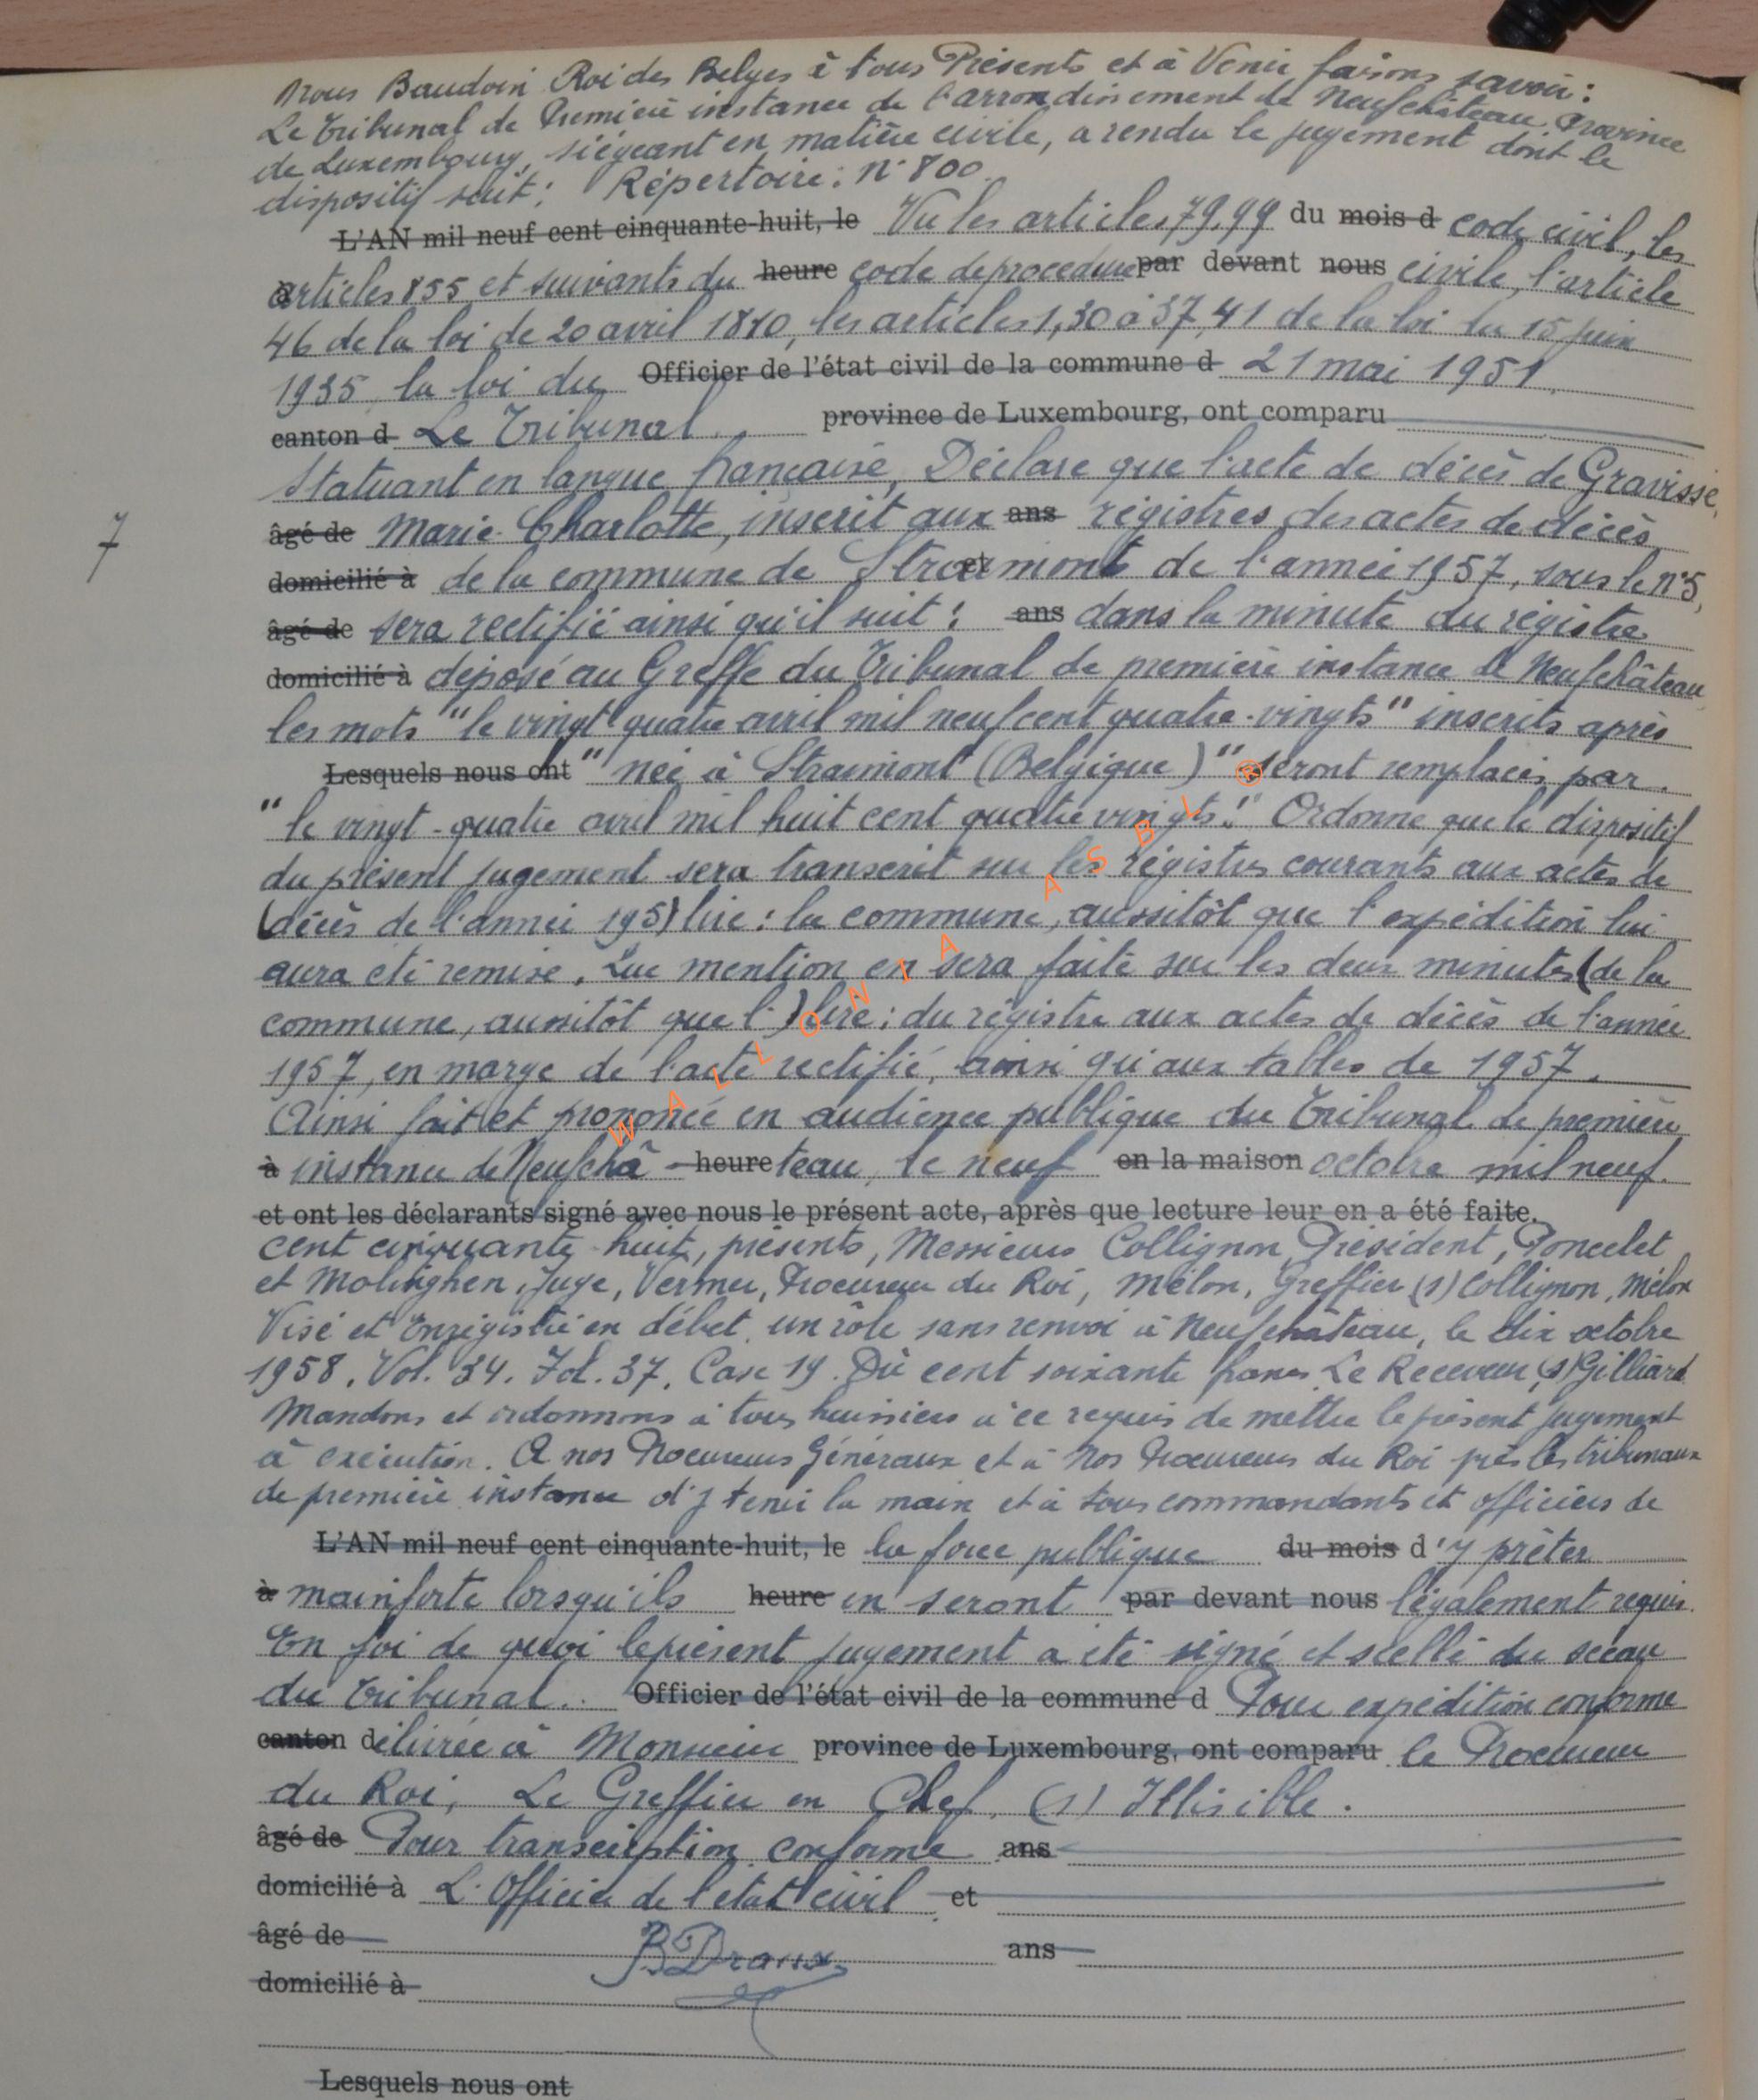 Nous Baudoin Roi des Belges à tous Présents et à Venir faisons savoir :
Le Tribunal de Première instance de l'arrondissement de Neufchâteau Province
de Luxembourg, siégeant en matière civile, a rendu le jugement dont le
dispositif suit : Répertoire : n° 800.
L'AN mil neuf cent cinquante-huit, le Vu les articles 79, 99 du mois d code civil, les
articles 855 et suivants du heure code de procedure par devant nous civile, l'article
46 de la loi de 20 avril 1810, les articles 1, 30 à 37, 41 de la loi du 15 juin
1935, la loi du Officier de l'état civil de la commune d 21 mai 1951.
canton d Le Tribunal province de Luxembourg, ont comparu
Statuant en langue française, Déclare que l'acte de décès de Gravisse,
âgé de Marie-Charlotte, inscrit aux ans régistres des actes de décès
7
domicilié à de la commune de Straimont et de l'année 1957, sous le n° 5,
âgé de sera rectifié ainsi qu'il suit : ans dans la minute du régistre
domicilié à déposé au Greffe du Tribunal de première instance de Neufchâteau
les mots "le vingt quatre avril mil neuf cent quatre-vingts" inscrits après
Lesquels nous ont "née à Straimont (Belgique)" seront remplacés par
"le vingt-quatre avril mil huit cent quatre vingts." Ordonne que le dispositif
du présent jugement sera transcrit sur les régistres courants aux actes de
(décès de l'année 195) lire : la commune, aussitôt que l'expédition lui
aura été remise. Que mention en sera faite sur les deux minutes (de la
commune, aussitôt que l') lire : du régistre aux actes de décès de l'année
1957, en marge de l'acte rectifié, ainsi qu'aux tables de 1957.
Ainsi fait et prononcé en audience publique du Tribunal de première
à instance de Neufchâ- heure teau, le neuf en la maison octobre mil neuf
et ont les déclarants signé avec nous le présent acte, après que lecture leur en a été faite.
cent cinquante-huit, présents, Messieurs Collignon, Président, Poncelet
et Molinghen, Juge, Vermer, Procureur du Roi, Mélon, Greffier (s) Collignon, Mélon
Visé et Enrégistré en débet, un rôle sans renvoi à Neufchâteau, le dix octobre
1958. Vol. 34. Fol. 37. Case 19. Dû cent soixante francs Le Receveur, (s) Gilliard
Mandons et ordonnons à tous huissiers à ce requis de mettre le présent jugement
à exécution. A nos Procureurs Généraux et à Nos Procureurs du Roi près les tribunaux
de première instance d'y tenir la main et à tous commandants et officiers de
L'AN mil neuf cent cinquante-huit, le la force publique du mois d'y prêter
à mainforte lorsqu'ils heure en seront par devant nous légalement requis.
En foi de quoi le présent jugement a été signé et scellé du sceau
du Tribunal. Officier de l'état civil de la commune d Pour expédition conforme
canton délivrée à Monsieur province de Luxembourg, ont comparu le Procureur
du Roi, Le Greffier en Chef. (s) Illisible.
âgé de Pour transcription conforme ans
domicilié à L'Officier de l'état civil et
âgé de B Draux ans
domicilié à
Lesquels nous ont
WALLONIA ASBL ®